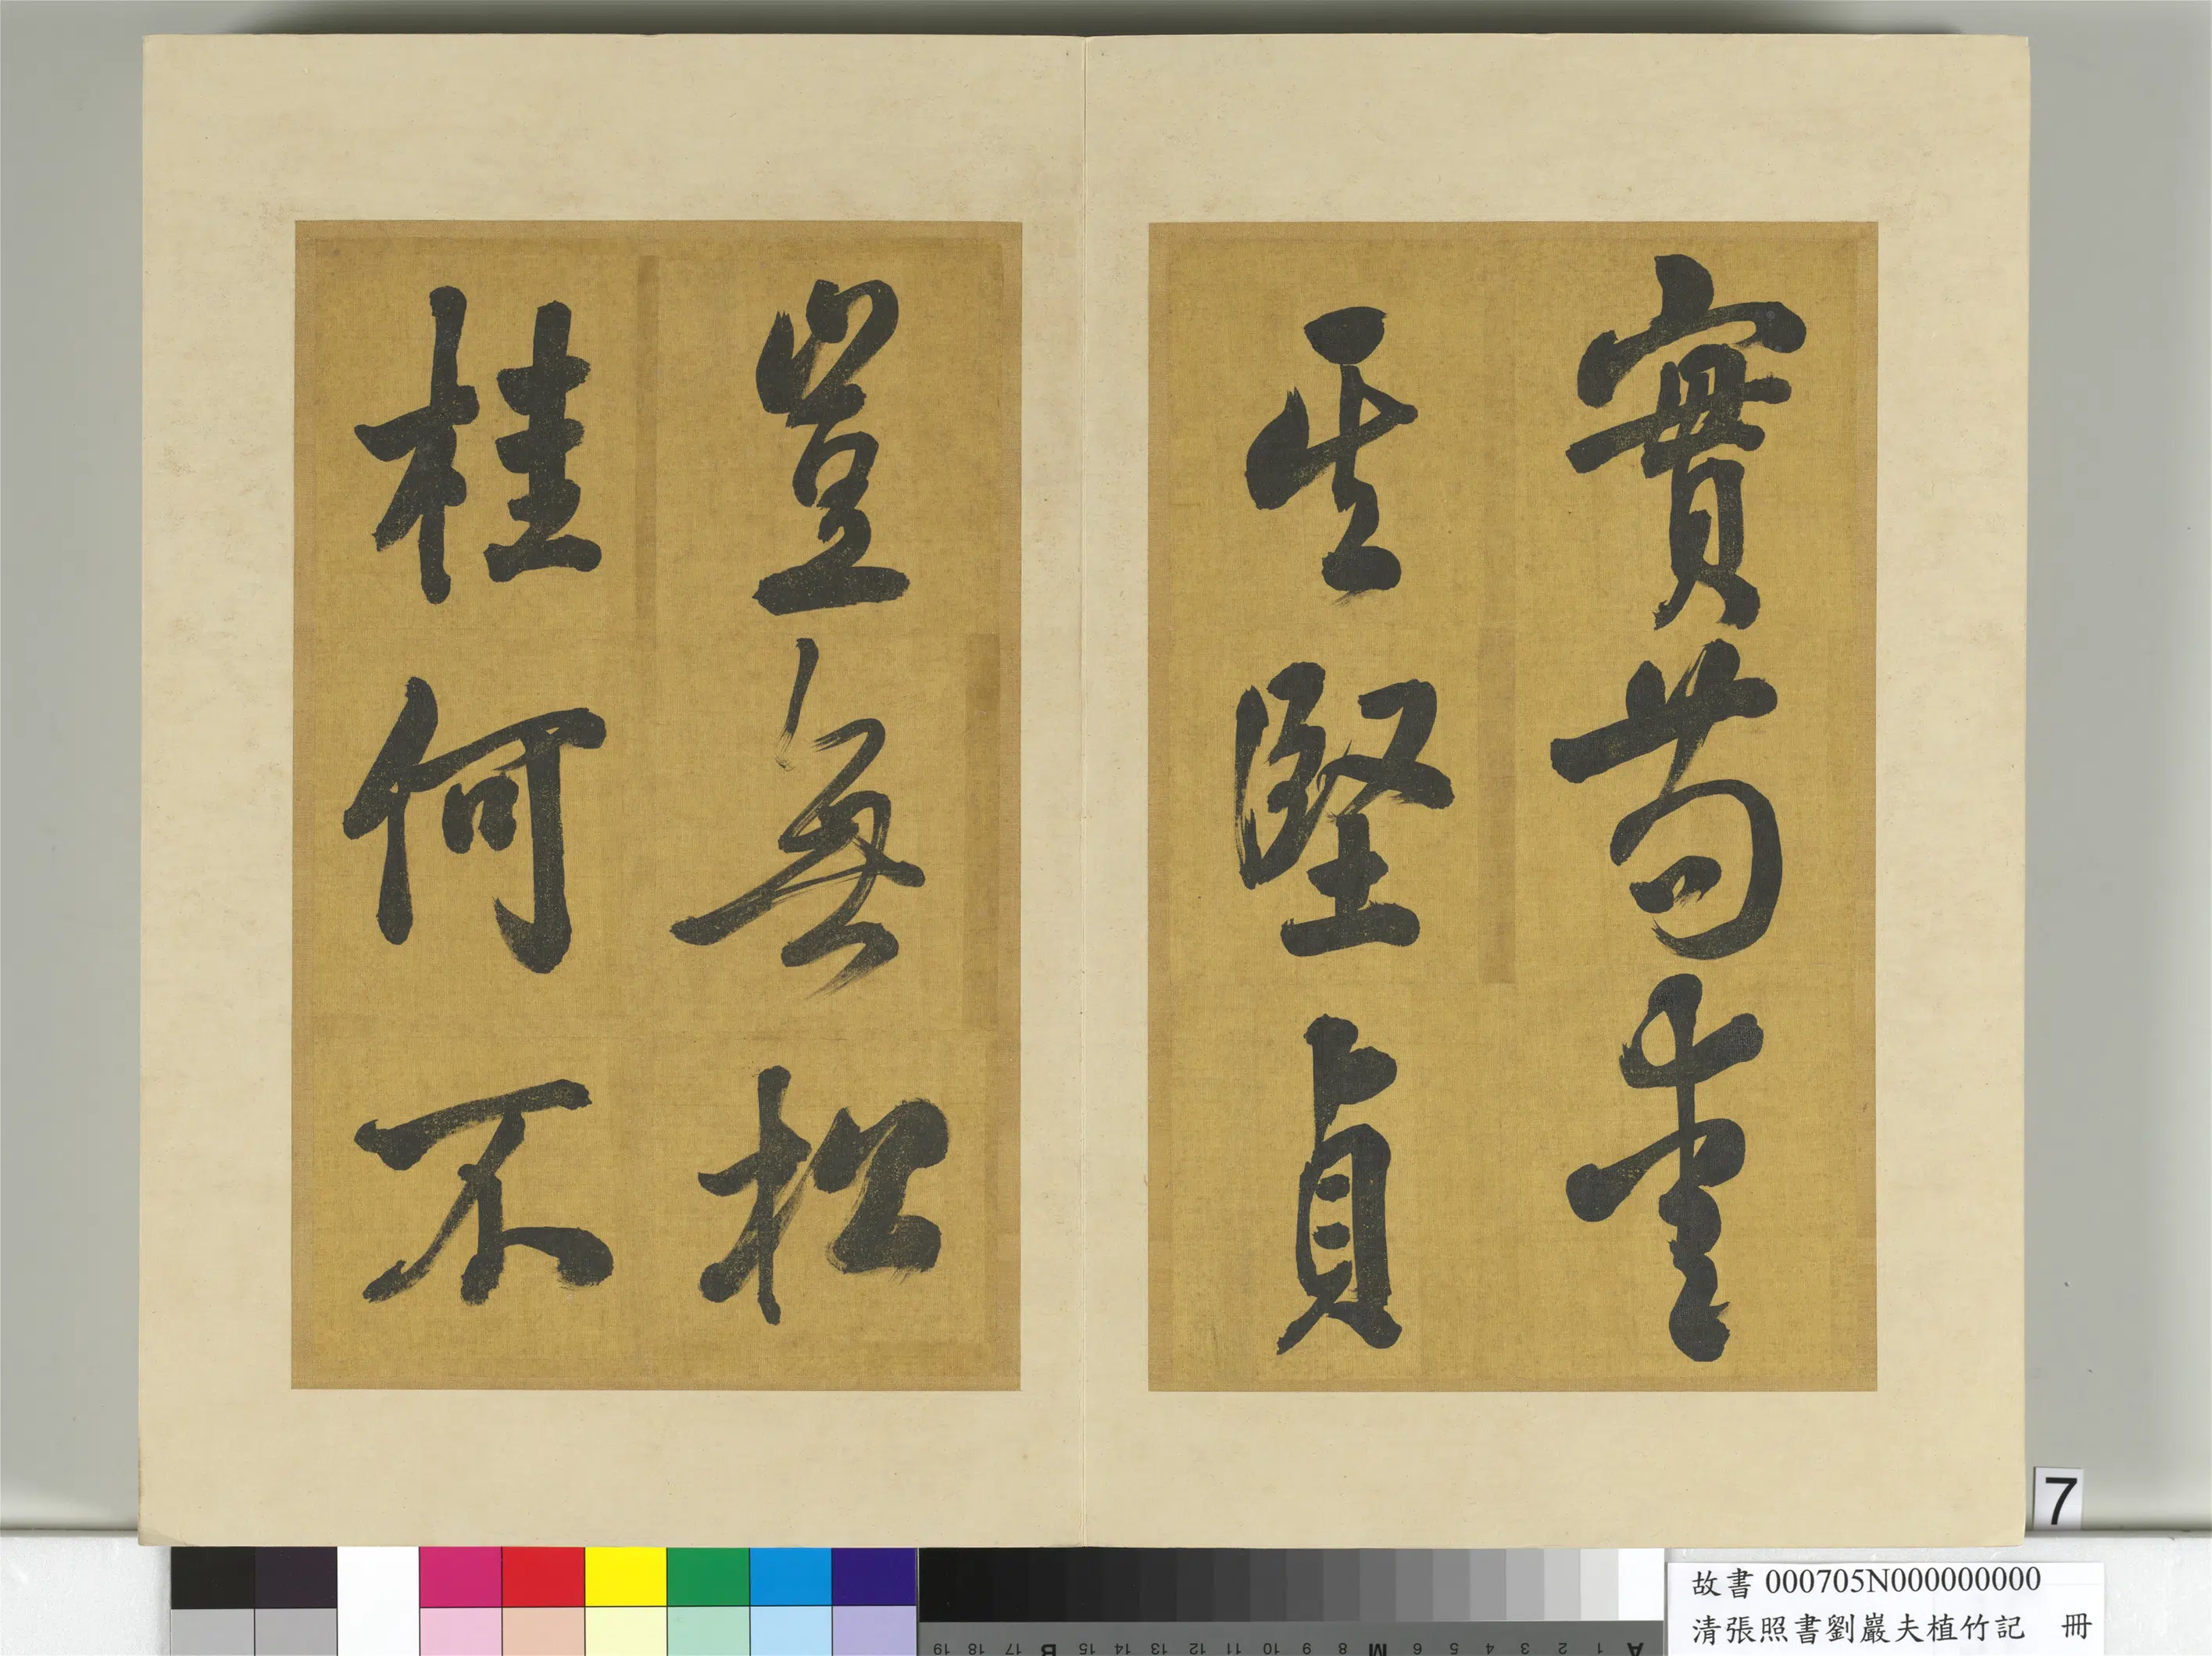 實苟愛
其堅貞
豈無松
桂何不
7
故書 000705N000000000
清張照書劉巖夫植竹記 冊
A 1 2 3 4 5 6 M 8 9 10 11 12 13 14 15 B 17 18 19